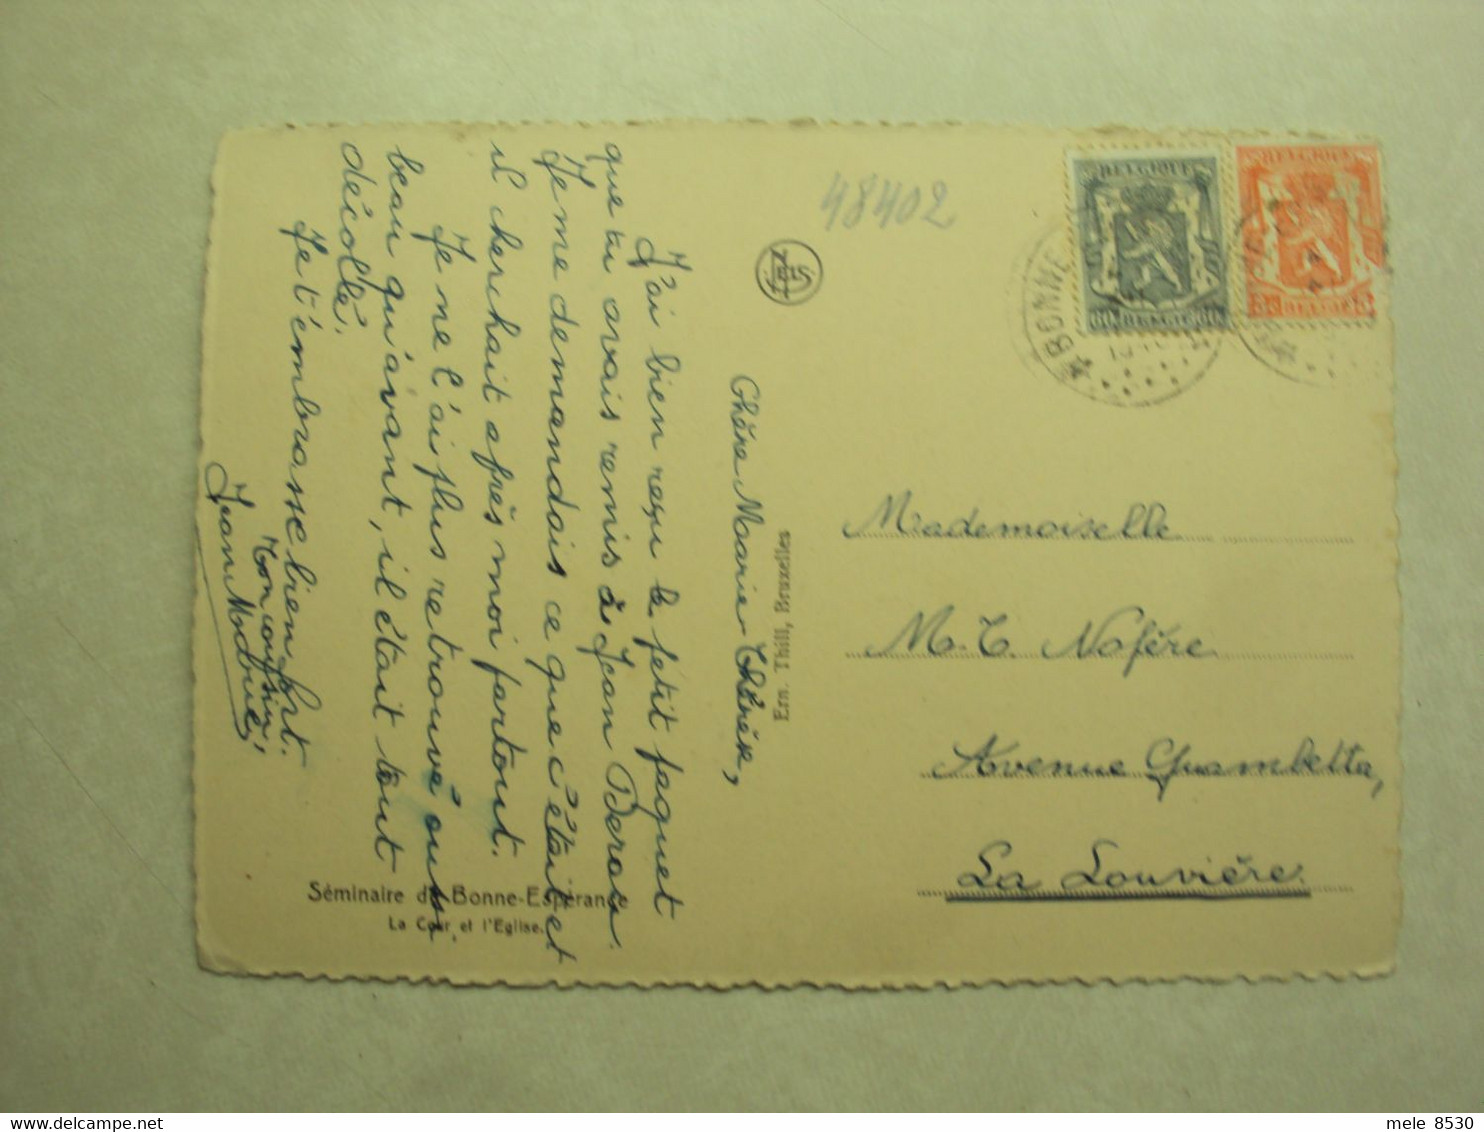 Chère Marie-Thérèse,
J'ai bien reçu le petit paquet
que tu avais remis à Jean Derou.
Je me demandais ce que c'était et
il cherchait après moi partout.
Je ne l'ai plus retrouvé aussi
beau qu'avant, il était tout
décollé.
Je t'embrasse bien fort.
Ton cousin,
48402
NELS
Ern. Thill, Bruxelles
Séminaire de Bonne-Espérance
La Cour et l'Eglise.
BELGIQUE
60 BELGIE 60
BELGIQUE
BELGIE
BONNE
Mademoiselle
M.T. Nofère
Avenue Guambetta,
La Louvière.
mele 8530